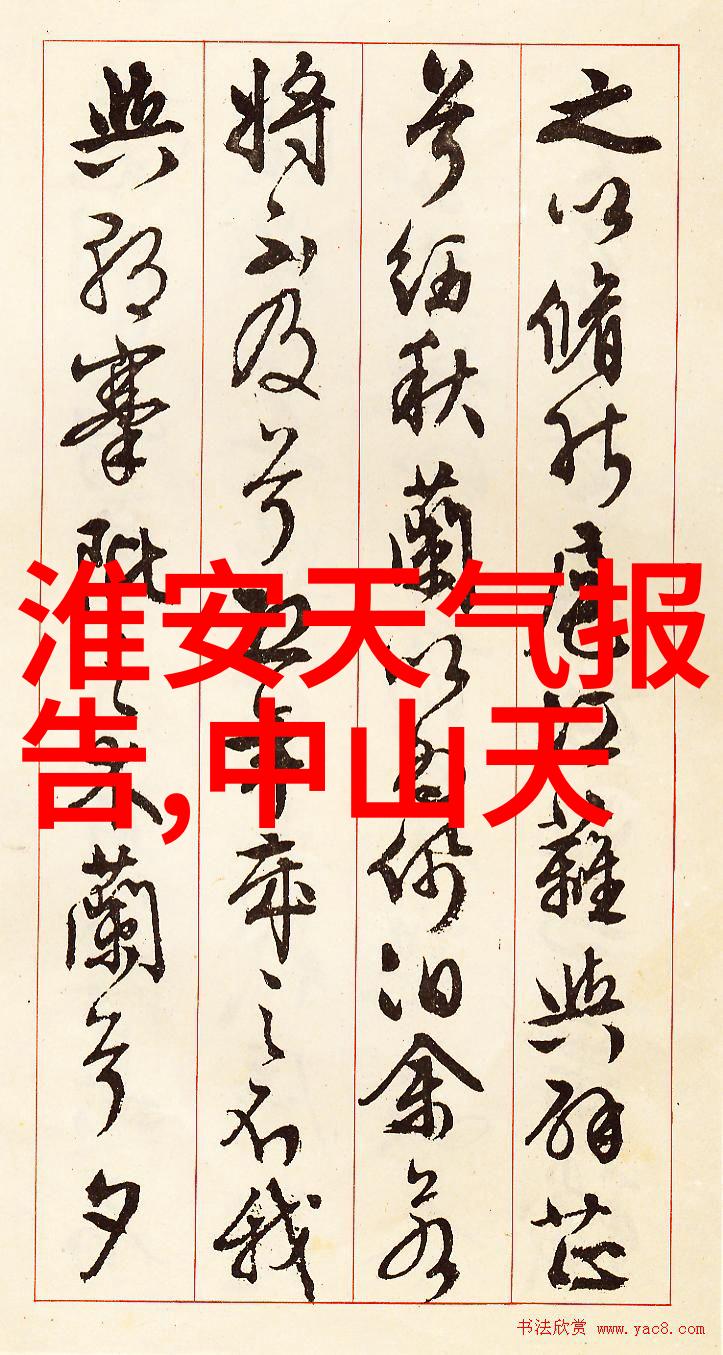 之以脩能扈江離與辟芷
兮紉秋蘭以為佩汩余若
將不及兮恐年歲之不我
與朝搴阰之木蘭兮夕
淮安天气报
告,中山天
书法欣赏 www.yac8.com